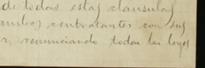 de todas estas clausulas
contratantes con sus
renunciando todas las leyes